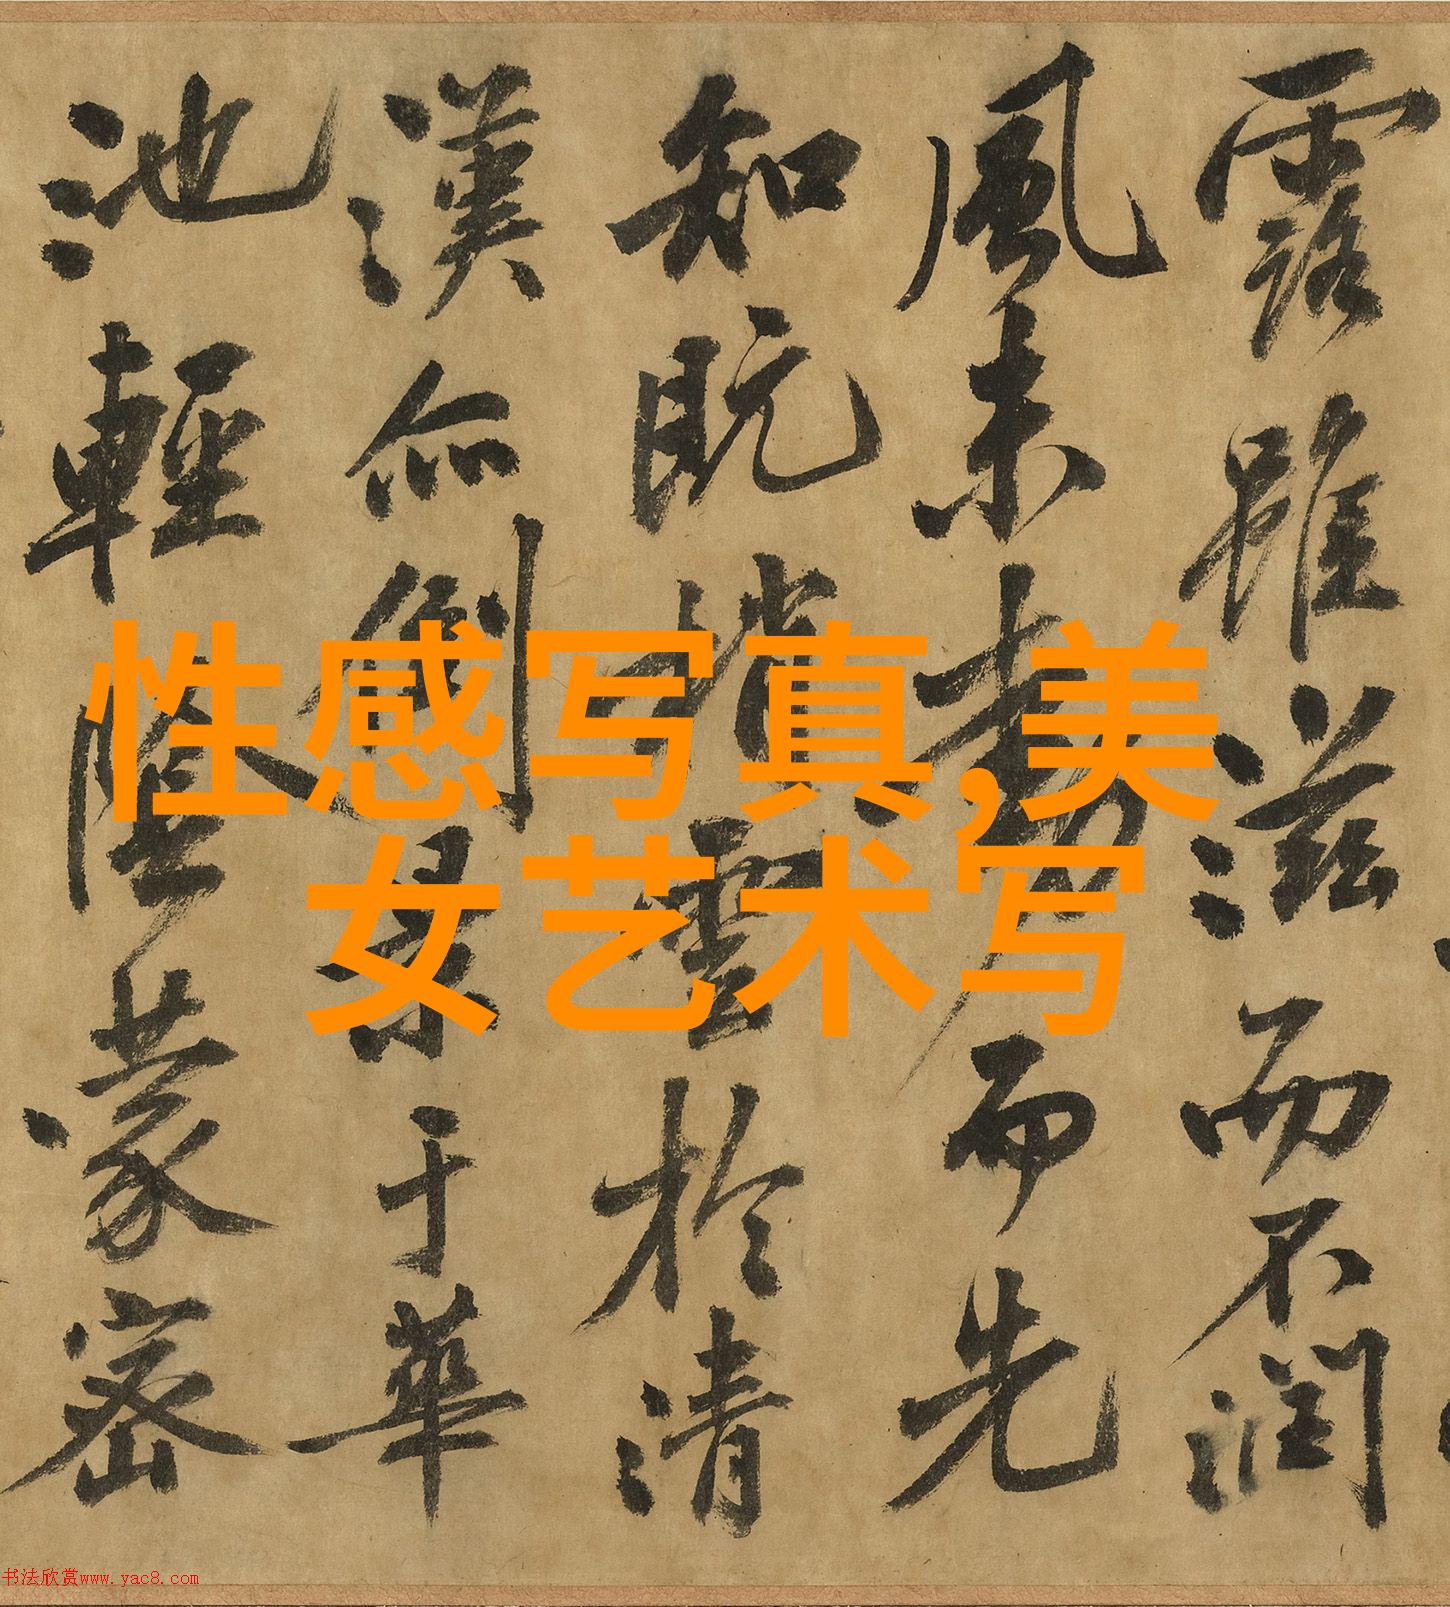 露雖滋而不润
風未動而先
知既消雲於清
漢亦倒景于華
池輕陰蒙密
性感写真,美
女艺术写
书法欣赏www.yac8.com